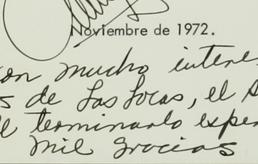 Noviembre de 1972.
con mucho intere
s de Las Locas, el
terminarlo esper
Mil gracias